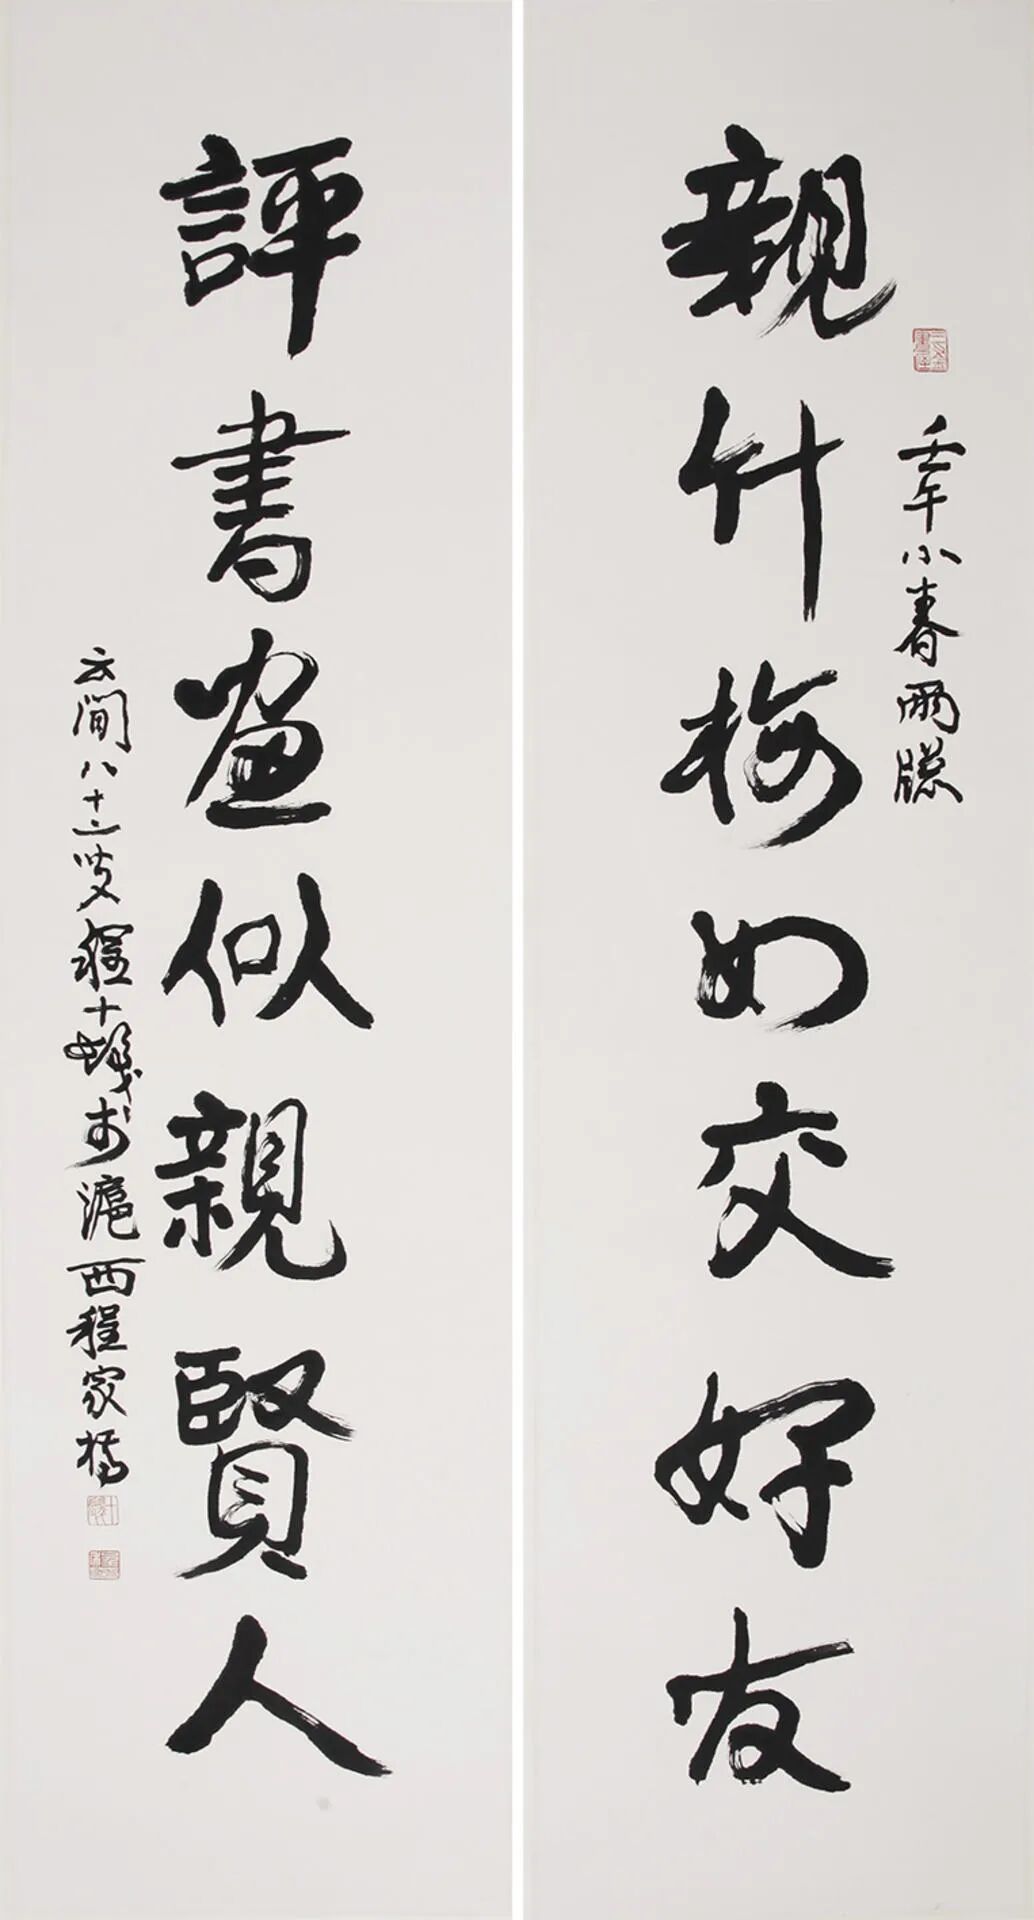 壬午小春雨牕
觀竹梅如交好友
評書畫似親賢人
云間八十二叟程十髮於滬西程家橋